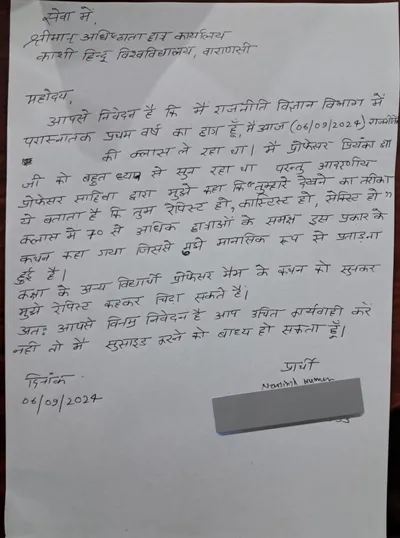 सेवा में,
श्रीमान् अधिष्ठाता छात्र कार्यालय
काशी हिन्दू विश्वविद्यालय, वाराणसी
महोदय,
आपसे निवेदन है कि मैं राजनीति विज्ञान विभाग में
परास्नातक प्रथम वर्ष का छात्र हूँ, मैं आज (06/09/2024)
की क्लास ले रहा था। मैं प्रोफेसर प्रियंका झा
जी को बहुत ध्यान से सुन रहा था परन्तु आदरणीय
प्रोफेसर साहिबा द्वारा मुझे कहा कि "तुम्हारे देखने का तरीका
ये बताता है कि तुम रेपिस्ट हो, कास्टिस्ट हो, सेक्सिट हो"
क्लास में 70 से अधिक छात्राओं के समक्ष इस प्रकार के
कथन कहा गया जिससे मुझे मानसिक रूप से प्रताड़ना
हुई है।
कक्षा के अन्य विद्यार्थी प्रोफेसर मैम के कथन को सुनकर
मुझे रेपिस्ट कहकर चिढ़ा सकते हैं।
अतः आपसे विनम्र निवेदन है आप उचित कार्यवाही करें
नहीं तो मैं सुसाइड करने को बाध्य हो सकता हूँ।
प्रार्थी
दिनांक
06/09/2024